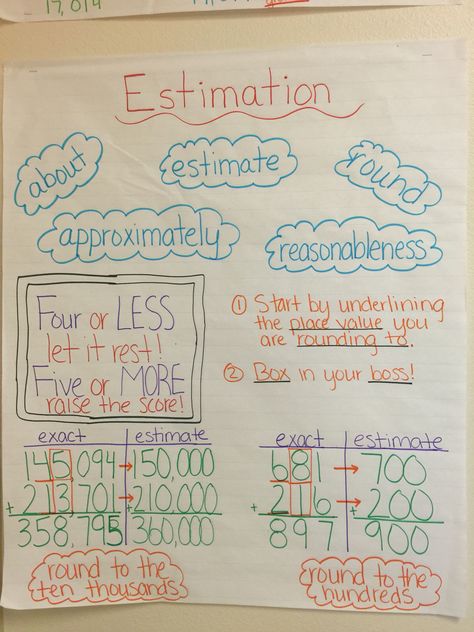 17,019
Estimation
about
estimate
round
approximately
reasonableness
Four or LESS
let it rest!
Five or MORE
raise the score!
① Start by underlining
the place value you
are rounding to.
② Box in your boss!
exact estimate
145,094 → 150,000
+ 213,701 → + 210,000
358,795 360,000
round to the
ten thousands
exact estimate
681 → 700
+ 216 → + 200
897 900
round to the
hundreds